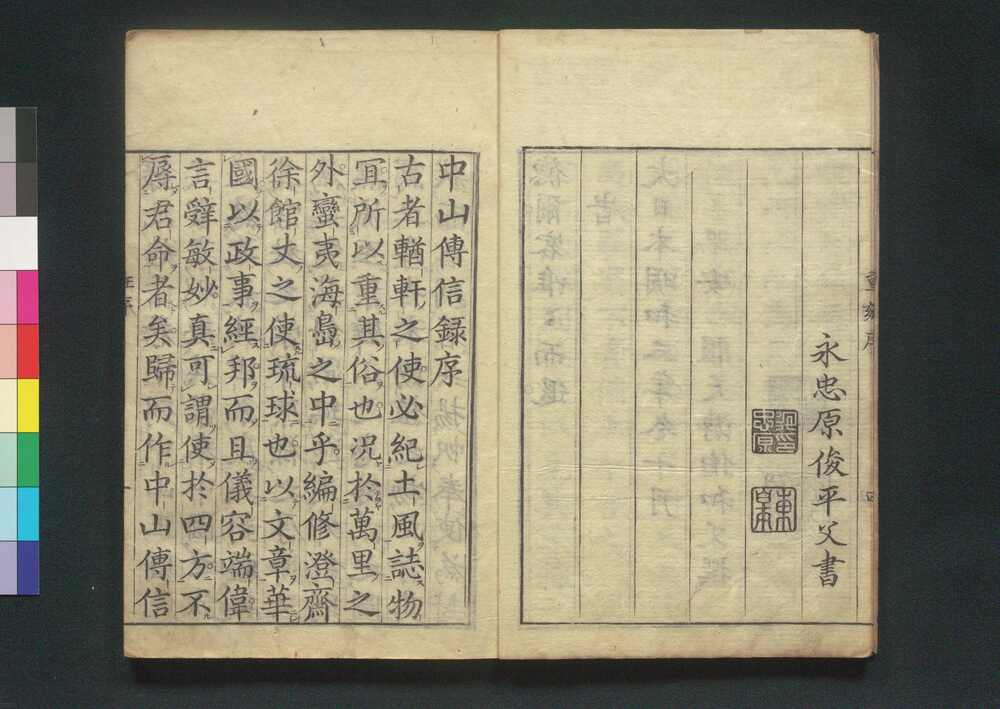 永忠原俊平父書
重刻序
四
中山傳信録序
古者輶軒之使必紀土風誌物
冝所以重其俗也况於萬里之
外蠻夷海島之中乎編修澄齋
徐館丈之使琉球也以文章華
國以政事經邦而且儀容端偉
言辤敏妙真可謂使於四方不
辱君命者矣歸而作中山傳信